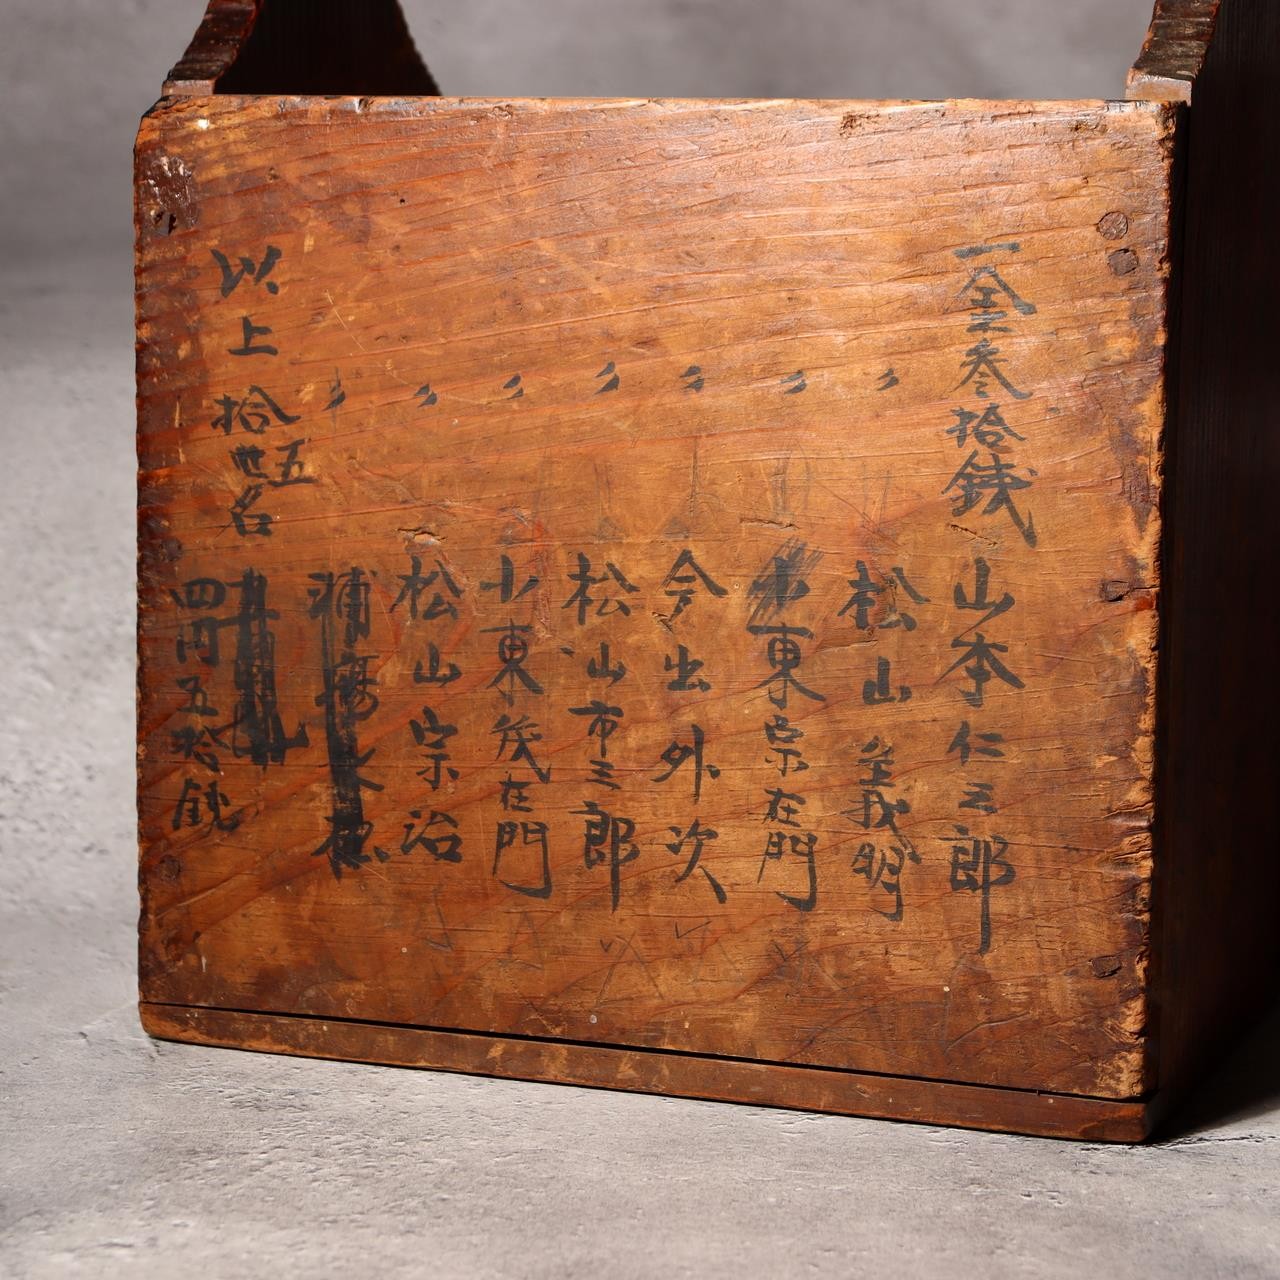 一金参拾銭 山本仁三郎
〃 松山義明
〃 小東宗左門
〃 今出外次
〃 松山市三郎
〃 小東茂左門
〃 松山宗治
〃 浦
以上拾五名
四円五拾銭